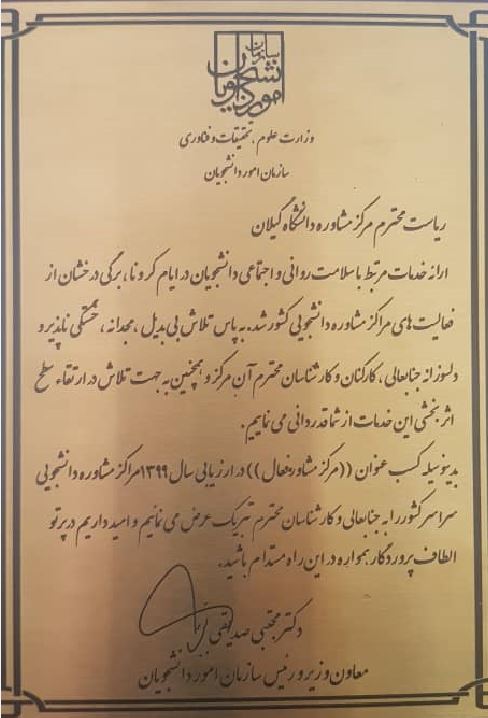 سازمان
امور دانشجویان
وزارت علوم، تحقیقات و فناوری
سازمان امور دانشجویان
ریاست محترم مرکز مشاوره دانشگاه گیلان
ارائه خدمات مرتبط با سلامت روانی و اجتماعی دانشجویان در ایام کرونا، برگی درخشان از
فعالیت های مراکز مشاوره دانشجویی کشور شد. به پاس تلاش بی بدیل، مجدانه، خستگی ناپذیر و
دلسوزانه جنابعالی، کارکنان و کارشناسان محترم آن مرکز و همچنین به جهت تلاش در ارتقاء سطح
اثربخشی این خدمات از شما قدردانی می نماییم.
بدینوسیله کسب عنوان ((مرکز مشاوره فعال)) در ارزیابی سال ۱۳۹۹ مراکز مشاوره دانشجویی
سراسر کشور را به جنابعالی و کارشناسان محترم تبریک عرض می نمائیم و امید داریم در پرتو
الطاف پروردگار همواره در این راه مستدام باشید.
دکتر مجتبی صدیقی
معاون وزیر و رئیس سازمان امور دانشجویان